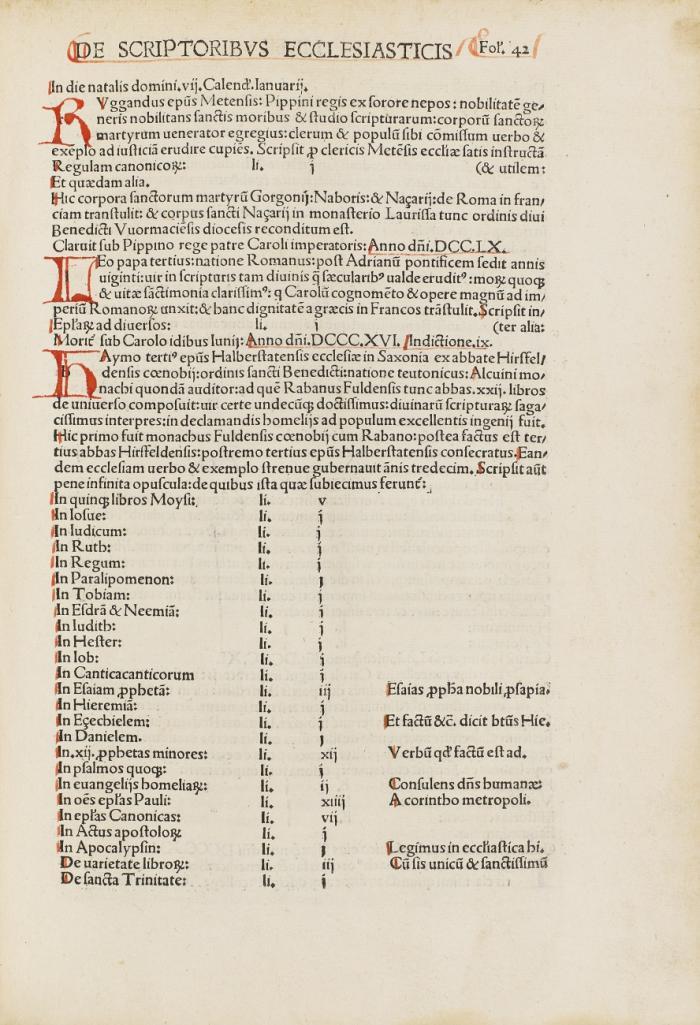 DE SCRIPTORIBVS ECCLESIASTICIS Fol'. 42
In die natalis domini.vij.Calend'.Ianuarij.
RVggandus epūs Metensis: Pippini regis ex sorore nepos: nobilitatē ge/
neris nobilitans sanctis moribus & studio scripturarum: corporū sanctoꝝ
martyrum uenerator egregius: clerum & populū sibi cōmissum uerbo &
exēplo ad iusticiā erudire cupiēs. Scripsit ꝓ clericis Metēsis eccliæ satis instructā
Regulam canonicoꝝ: li. j (& utilem:
Et quædam alia.
Hic corpora sanctorum martyrū Gorgonij: Naboris: & Naçarij: de Roma in fran/
ciam transtulit: & corpus sancti Naçarij in monasterio Laurissa tunc ordinis diui
Benedicti Vuormaciēsis diocesis reconditum est.
Claruit sub Pippino rege patre Caroli imperatoris: Anno dñi.DCC.LX.
LEo papa tertius: natione Romanus: post Adrianū pontificem sedit annis
uiginti: uir in scripturis tam diuinis q̄ sæcularibꝰ ualde eruditꝰ: moꝝ quoqꝫ
& uitæ sāctimonia clarissimꝰ: q Carolū cognomēto & opere magnū ad im/
periū Romanoꝝ unxit: & hanc dignitatē a græcis in Francos trāstulit. Scripsit in/
Epl'aꝝ ad diuersos: li. j (ter alia:
Moriť sub Carolo idibus Iunij: Anno dñi.DCCC.XVI. Indictione.ix.
HAymo tertiꝰ epūs Halberstatensis ecclesiæ in Saxonia ex abbate Hirsfel/
densis cœnobij: ordinis sancti Benedicti: natione teutonicus: Alcuini mo/
nachi quondā auditor: ad quē Rabanus Fuldensis tunc abbas.xxij. libros
de uniuerso composuit: uir certe undecūqꝫ doctissimus: diuinarū scripturaꝝ saga/
cissimus interpres: in declamandis homelijs ad populum excellentis ingenij fuit.
Hic primo fuit monachus Fuldensis cœnobij cum Rabano: postea factus est ter/
tius abbas Hirsfeldensis: postremo tertius epūs Halberstatensis consecratus. Ean/
dem ecclesiam uerbo & exemplo strenue gubernauit ānis tredecim. Scripsit aūt
pene infinita opuscula: de quibus ista quæ subiecimus ferunť:
In quinqꝫ libros Moysi: li. v
In Iosue: li. j
In Iudicum: li. j
In Ruth: li. j
In Regum: li. j
In Paralipomenon: li. j
In Tobiam: li. j
In Esdrā & Neemiā: li. j
In Iudith: li. j
In Hester: li. j
In Iob: li. j
In Canticacanticorum li. j
In Esaiam ꝓphetā: li. iij Esaias ꝓpħa nobili ꝓsapia.
In Hieremiā: li. j
In Eçechielem: li. j Et factū &c̄. dicit btūs Hie.
In Danielem. li. j
In.xij.ꝓphetas minores: li. xij Verbū qđ factū est ad.
In psalmos quoqꝫ: li. j
In euangelijs homeliaꝝ: li. ij Consulens dñs humanæ:
In oēs epl'as Pauli: li. xiiij A corintho metropoli.
In epl'as Canonicas: li. vij
In Actus apostoloꝝ li. j
In Apocalypsin: li. j Legimus in eccl'iastica hi.
De uarietate libroꝝ: li. iij Cū sis unicū & sanctissimū
De sancta Trinitate: li. j